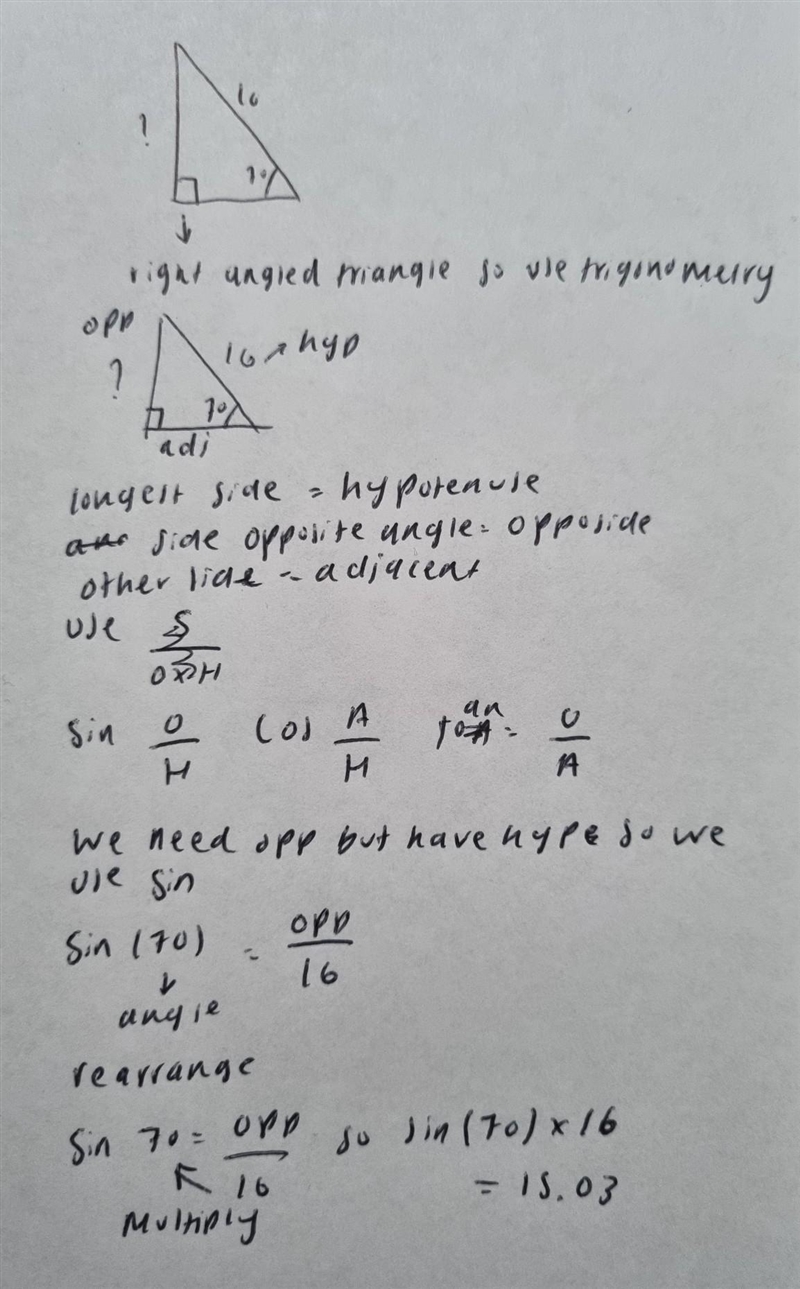 16
?
70
right angled triangle so use trigonometry
opp
16 → hyp
?
70
adj
longest side = hypotenuse
side opposite angle = opposide
other side = adjacent
use S
O x H
Sin O/H Cos A/H tan = O/A
We need opp but have hype so we
use sin
Sin (70) = opp/16
↓
angle
rearrange
Sin 70 = opp/16 so sin(70) x 16
= 15.03
Multiply